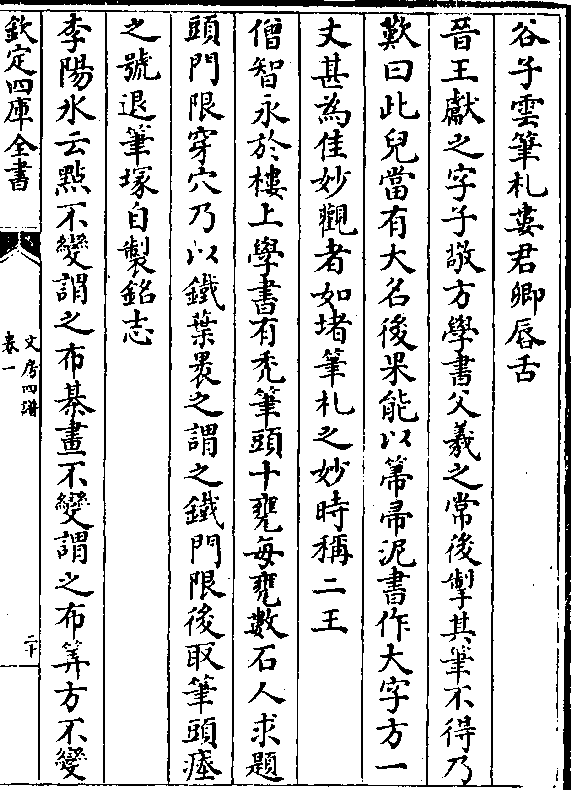 谷子雲筆札婁君卿唇舌
晉王獻之字子敬方學書父羲之常後掣其筆不得乃
歎曰此兒當有大名後果能以箒帚泥書作大字方一
丈甚為佳妙觀者如堵筆札之妙時稱二王
僧智永於樓上學書有禿筆頭十甕每甕數石人求題
頭門限穿穴乃以鐵葉裹之謂之鐵門限後取筆頭瘞
之號退筆塚自製銘志
李陽氷云點不變謂之布棊畫不變謂之布筭方不變
欽定四庫全書
文房四譜
卷一
二十